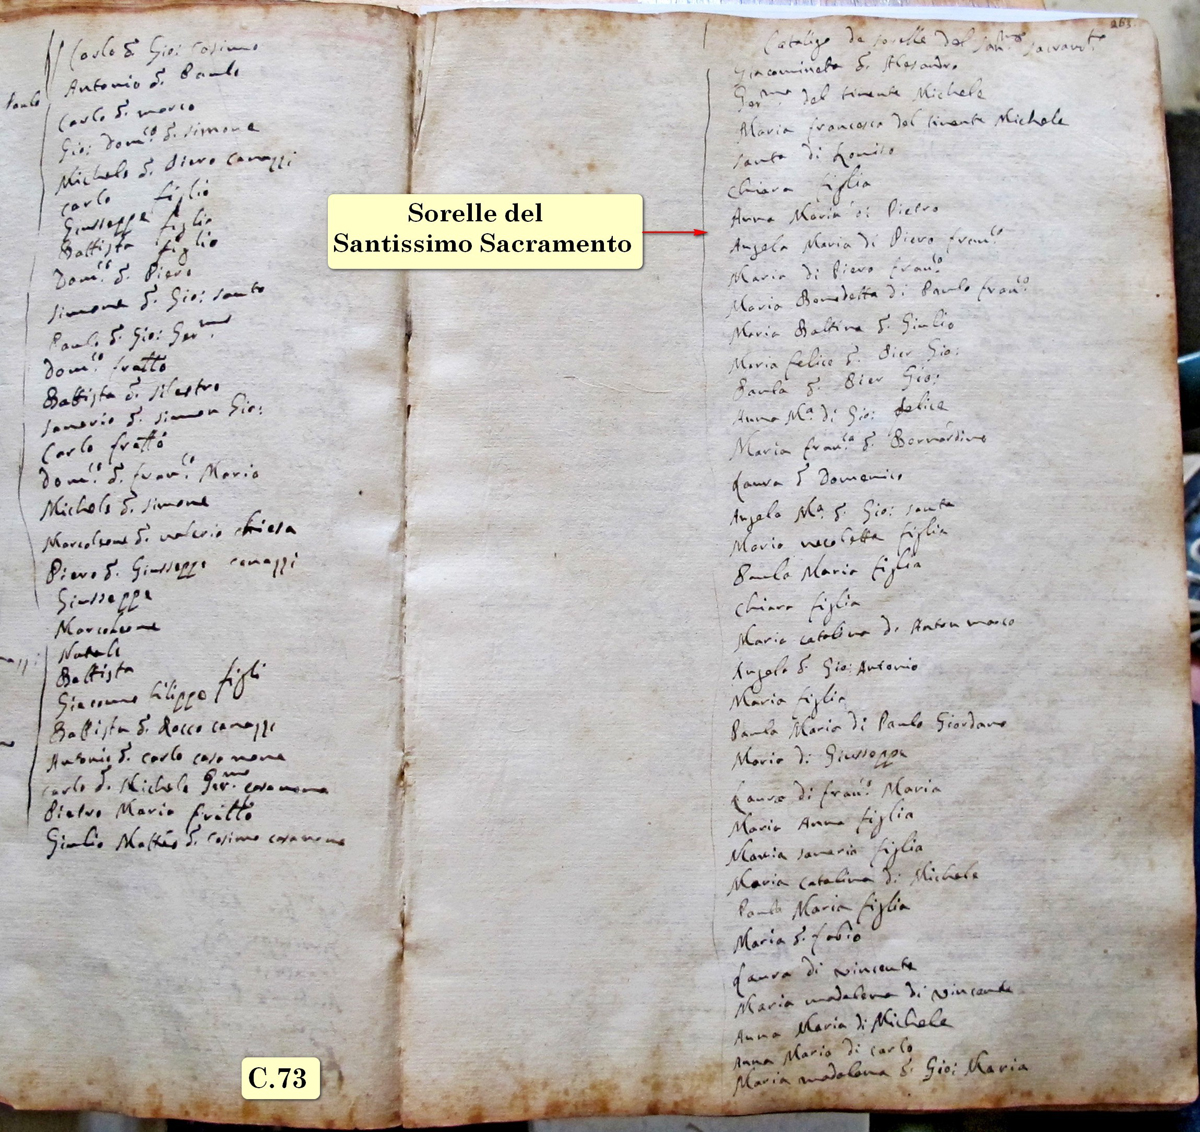 Paulo
Carlo q. Gio: Cosimo
Antonio q. Paulo
Carlo q. marco
Gio: Dom.co q. simone
Michele q. Piero canazzi
Carlo figlio
Giuseppe figlio
Battista figlio
Dom.co q. Piero
simone q. Gio: santo
Paulo q. Gio: Ger.mo
Dom.co fratto
Battista q. silestro
saverio q. simon Gio:
Carlo fratto
Dom.co q. fran.co Maria
Michele q. simone
Marcoleone q. valerio chiesa
Piero q. Giuseppe canazzi
Giuseppe
Marcoleone
Natale
Battista
Giacomo filippo figli
Battista q. Rocco canazzi
Antonio q. carlo casanova
carlo q. Michele Ger.mo casanova
Pietro Maria fratto
Giulio Matteo q. cosimo casanova
C.73
Sorelle del
Santissimo Sacramento
263
Catalogo de sorelle del San.mo Sacram.to
Giacomineta q. Alesandro
Ger.ma del tinente Michele
Maria francesca del tinente Michele
santa di
Chiara figlia
Anna Maria di Pietro
Angela Maria di Piero fran.co
Maria di Piero fran.co
Maria Benedetta di Paulo fran.co
Maria Baltina q. Giulio
Maria felice q. Pier Gio:
Paula q. Pier Gio:
Anna M.a di Gio: felice
Maria fran.ca q. Bernardino
Laura q. Domenico
Angela M.a q. Gio: santo
Maria nicoletta figlia
Paula Maria figlia
Chiara figlia
Maria catalina di Anton marco
Angela q. Gio: Antonio
Maria figlia
Paula Maria di Paulo Giordano
Maria di Giuseppe
Laura di fran.co Maria
Maria Anna figlia
Maria saveria figlia
Maria catalina di Michele
Paula Maria figlia
Maria q. fabio
Laura di vincente
Maria madalena di vincente
Anna Maria di Michele
Anna Maria di carlo
Maria madalena q. Gio: Maria